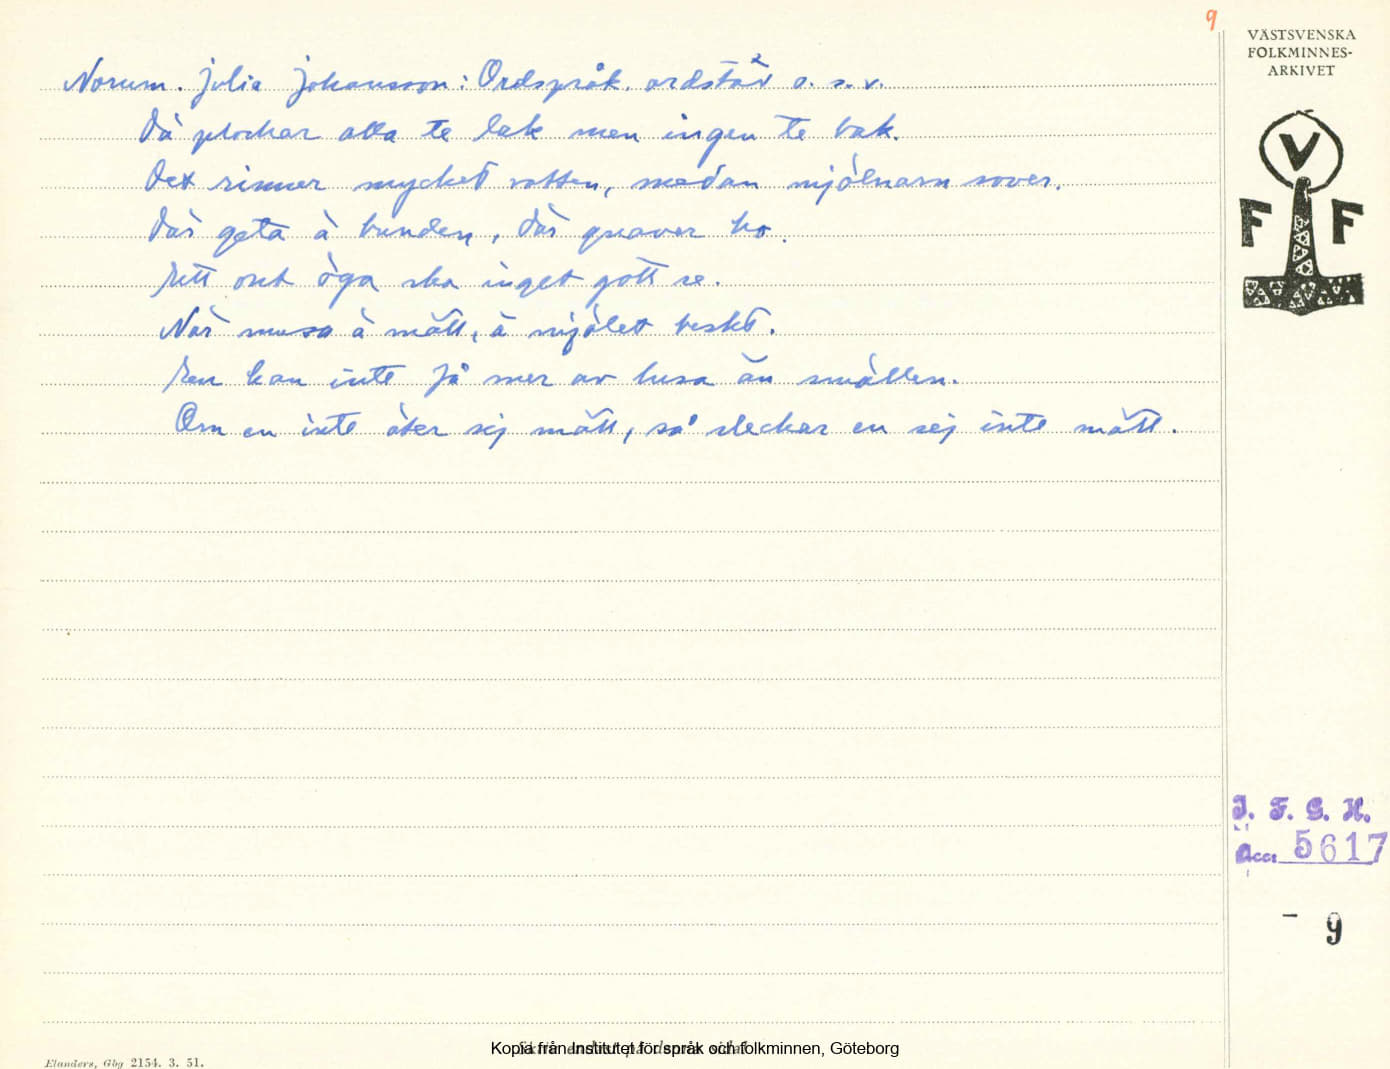 9
VÄSTSVENSKA
FOLKMINNES-
ARKIVET
Norum. Julia Johansson: Ordspråk, ordstäv o. s. v.
Då plockar alla te lak men ingen te bak.
Det rinner mycket vatten, medan mjölnarn sover.
Där geta ä bunden, där gnaver ho.
Ett ont öga ska inget gott se.
När musa ä mätt, ä mjölet beskt.
En kan inte få mer av lusa än smällen.
Om en inte äter sej mätt, så sleckar en sej inte mätt.
V
F F
I. F. G. H.
Acc. 5617
- 9
Kopia från Institutet för språk och folkminnen, Göteborg
Elanders, Gbg 2154. 3. 51.